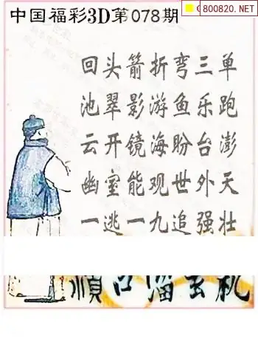 800820.NET
中国福彩3D第078期
回头箭折弯三单
池翠影游鱼乐跑
云开镜海盼台澎
幽室能观世外天
一逃一九追强壮